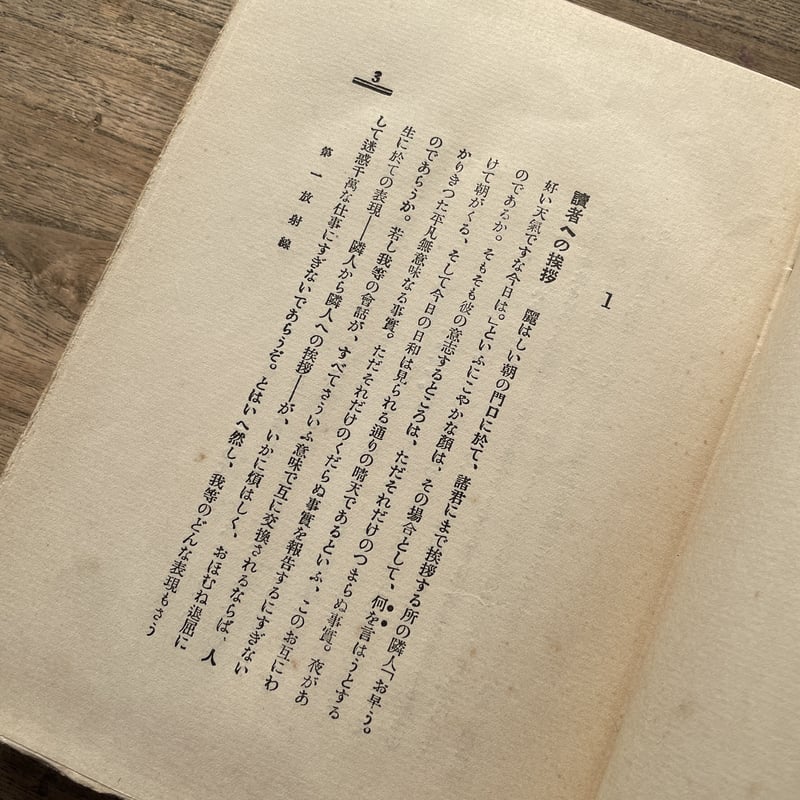 1
讀者への挨拶　麗はしい朝の門口に於て、諸君にまで挨拶する所の隣人「お早う。
好い天氣ですな今日は。」といふにこやかな顏は、その場合として、何を言はうとする
のであるか。そもそも彼の意志するところは、ただそれだけのつまらぬ事實。夜があ
けて朝がくる、そして今日の日和は見られる通りの晴天であるといふ、このお互にわ
かりきつた平凡無意味なる事實。ただそれだけのくだらぬ事實を報告するにすぎない
のであらうか。若し我等の會話が、すべてさういふ意味で互に交換されるならば、人
生に於ての表現――隣人から隣人への挨拶――が、いかに煩はしく、おほむね退屈に
して迷惑千萬な仕事にすぎないであらうぞ。とはいへ然し、我等のどんな表現もさう
第一放射線
3